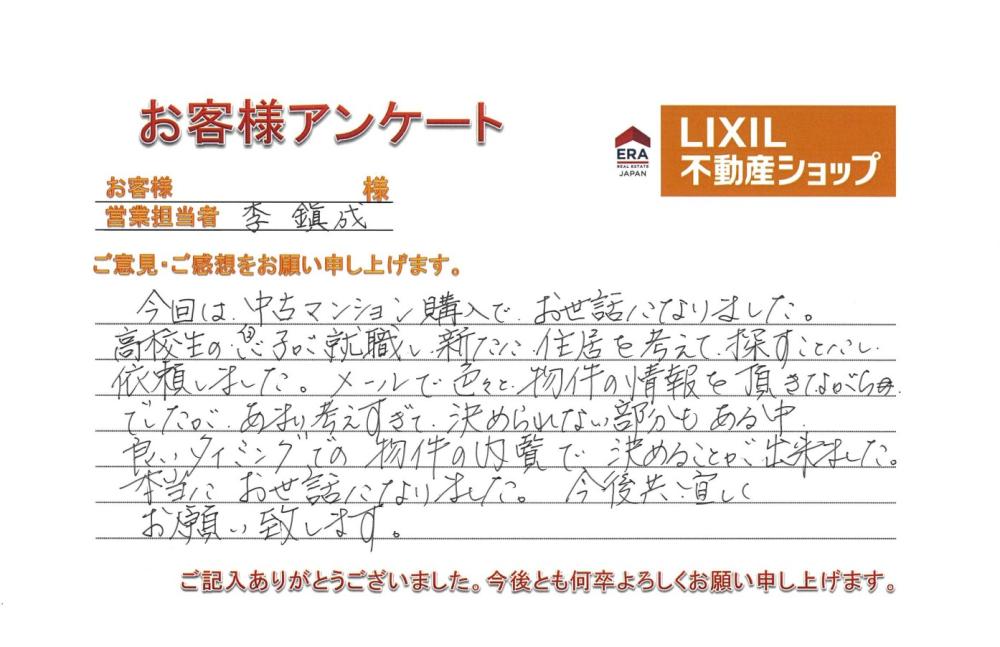 お客様アンケート
ERA
REAL ESTATE
JAPAN
LIXIL
不動産ショップ
お客様 様
営業担当者 李 鎭成
ご意見・ご感想をお願い申し上げます。
今回は、中古マンション購入で、お世話になりました。
高校生の息子が就職し、新たに住居を考えて、探すことにし
依頼しました。メールで色々と、物件の情報を頂きながら
でしたが、あまり考えすぎて、決められない部分もある中、
良いタイミングでの物件の内覧で、決めることが出来ました。
本当に お世話になりました。 今後共、宜しく
お願い致します。
ご記入ありがとうございました。今後とも何卒よろしくお願い申し上げます。